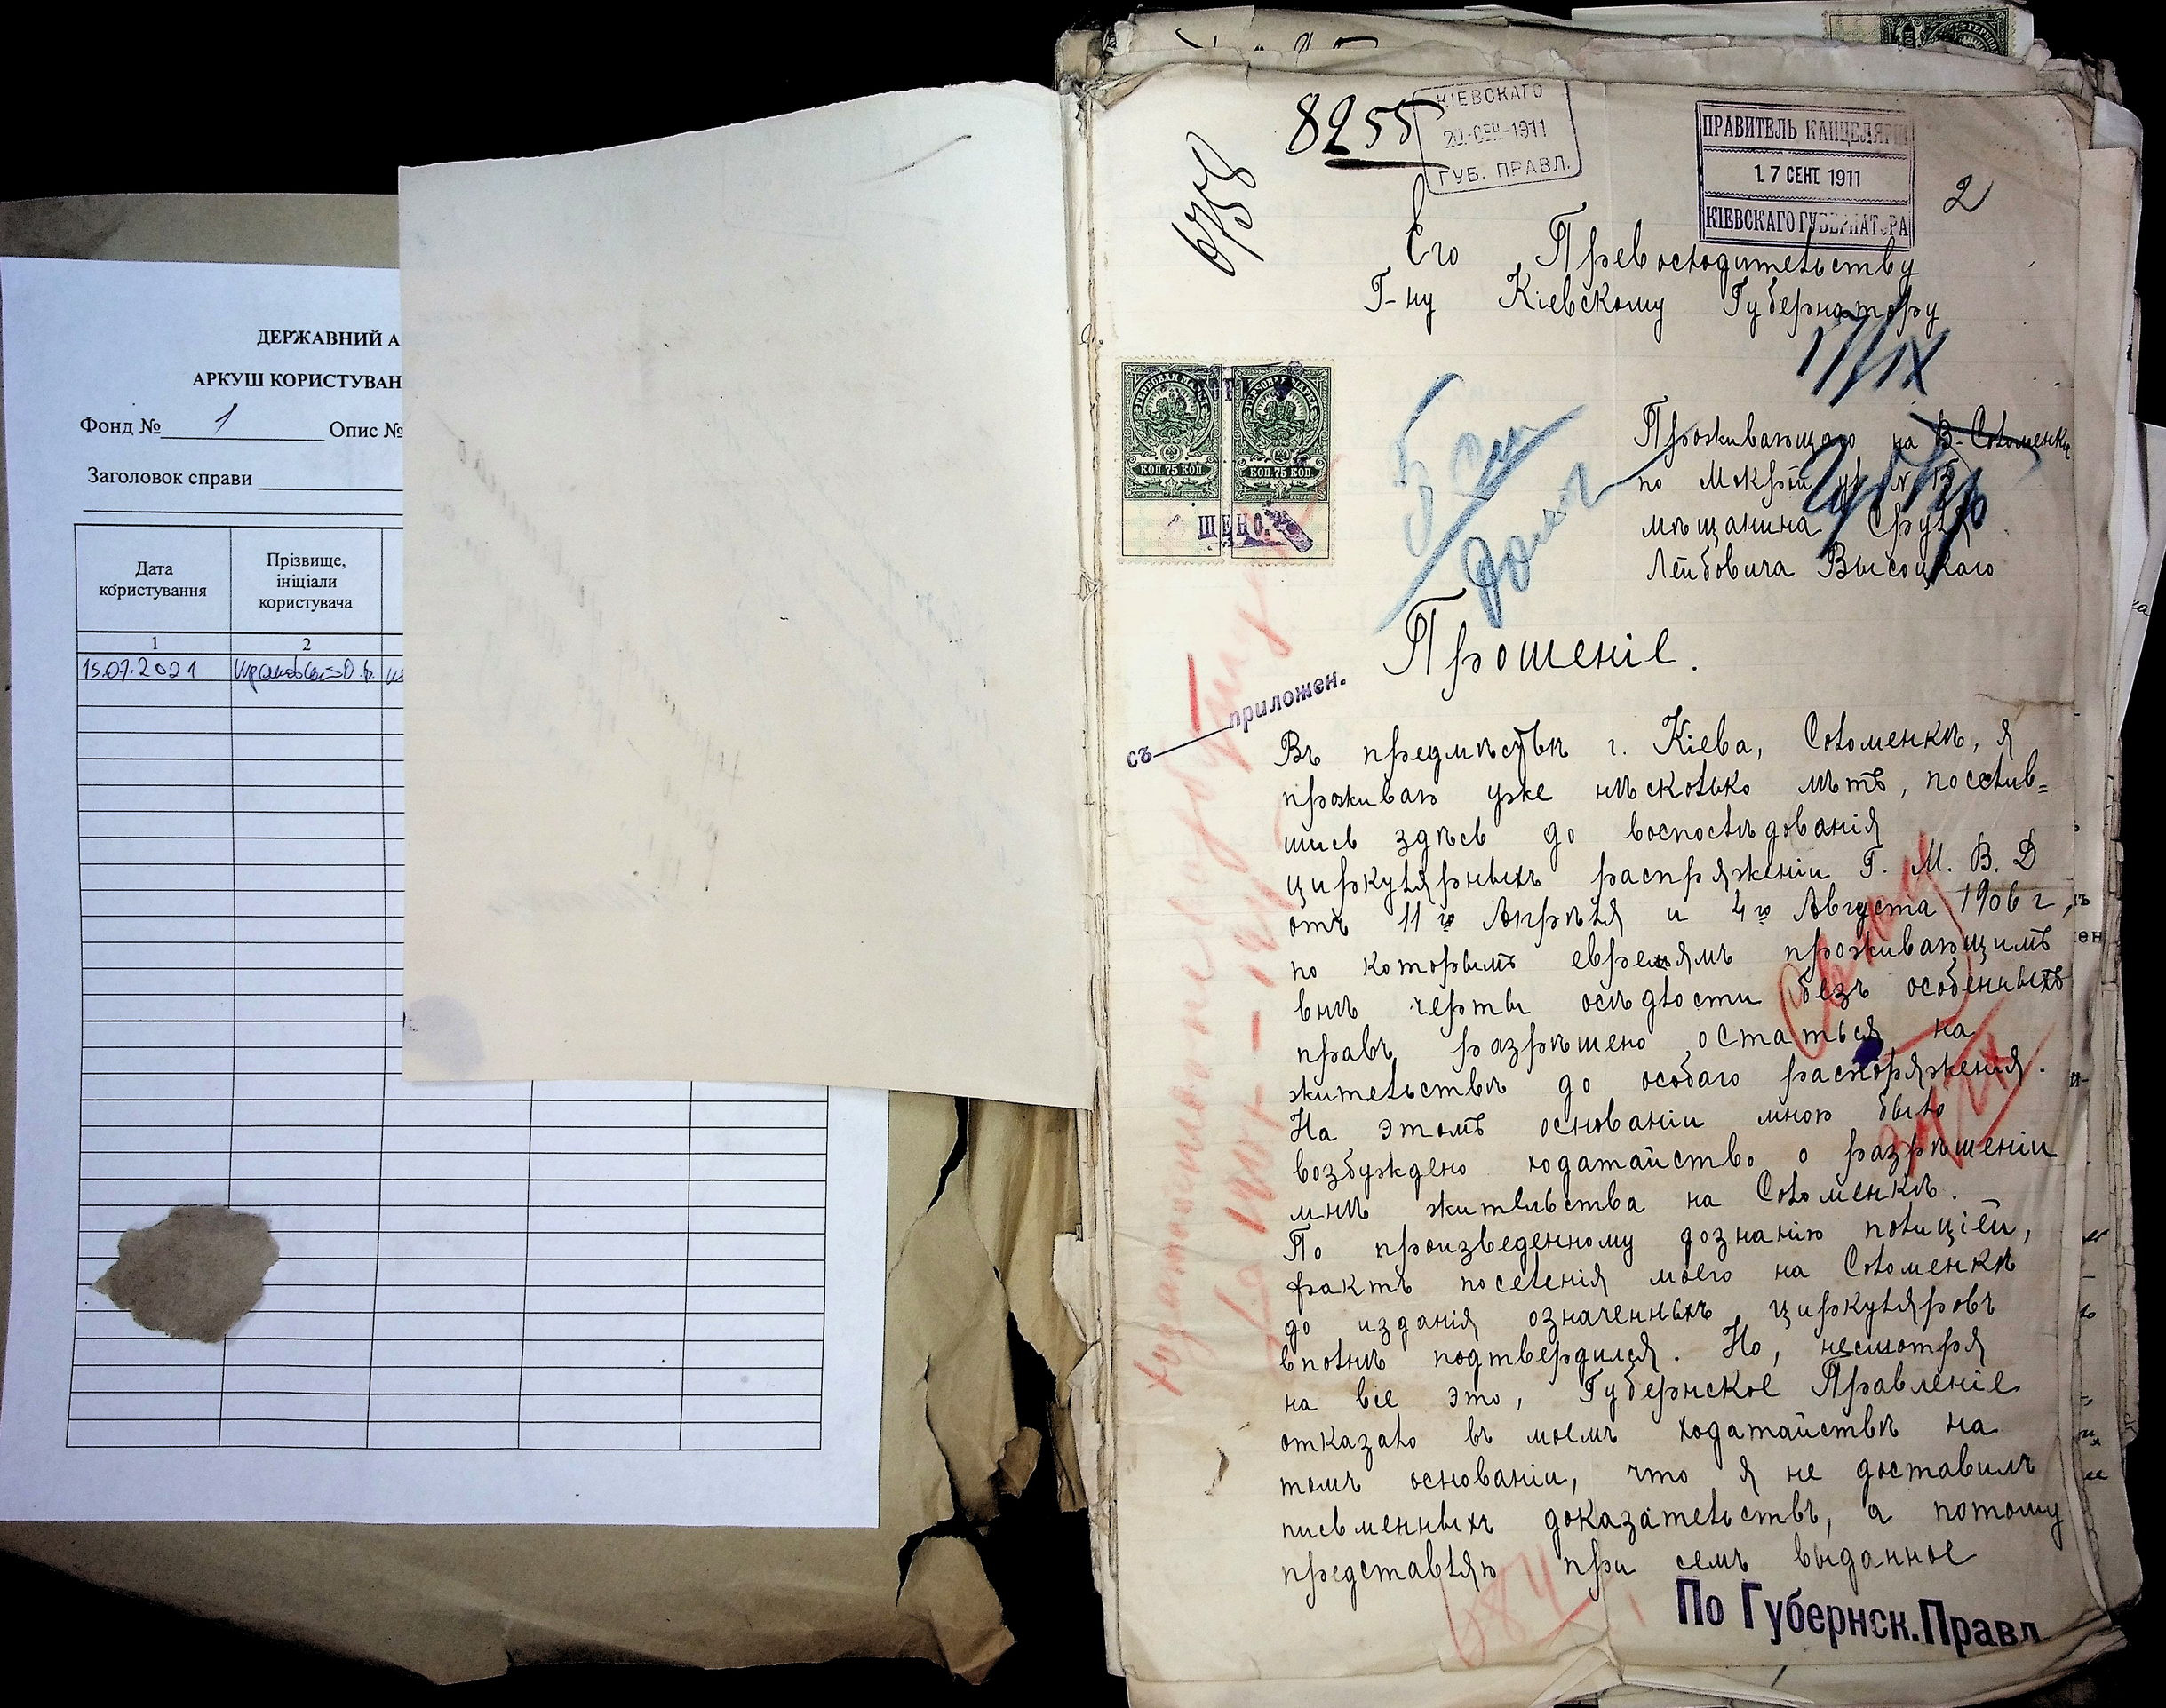 ДЕРЖАВНИЙ А
АРКУШ КОРИСТУВАН
Фонд № 1 Опис №
Заголовок справи
Дата користування
Прізвище, ініціали користувача
1
2
15.07.2021
8255
6758
КІЕВСКАГО
20-СЕН-1911
ГУБ. ПРАВЛ.
ПРАВИТЕЛЬ КАНЦЕЛЯРІИ
17 СЕНТ 1911
КІЕВСКАГО ГУБЕРНАТОРА
2
Его Превосходительству
Г-ну Кіевскому Губернатору
17/IX
КОП. 75 КОП.
КОП. 75 КОП.
Проживающаго на В-Соломенкѣ
по Мокрой ул № 13
мѣщанина Сруля
Лейбовича Высоцкаго
Прошеніе.
съ приложен.
Въ предмѣстьѣ г. Кіева, Соломенкѣ, я
проживаю уже нѣсколько лѣтъ, поселив=
шись здѣсь до воспослѣдованія
циркулярныхъ распряженіи Г. М. В. Д
отъ 11го Апрѣля и 4го Августа 1906 г,
по которымъ евреямъ проживающимъ
внѣ черты осѣдлости безъ особенныхъ
правъ разрѣшено остаться на
жительствѣ до особаго распоряженія.
На этомъ основаніи мною было
возбуждено ходатайство о разрѣшеніи
мнѣ жительства на Соломенкѣ.
По произведенному дознанію полиціей,
фактъ поселенія моего на Соломенкѣ
до изданія означенныхъ циркуляровъ
вполнѣ подтвердился. Но, несмотря
на все это, Губернское Правленіе
отказало въ моемъ ходатайствѣ на
томъ основаніи, что я не доставилъ
письменныхъ доказательствъ, а потому
представляю при семъ выданное
684
По Губернск. Правл